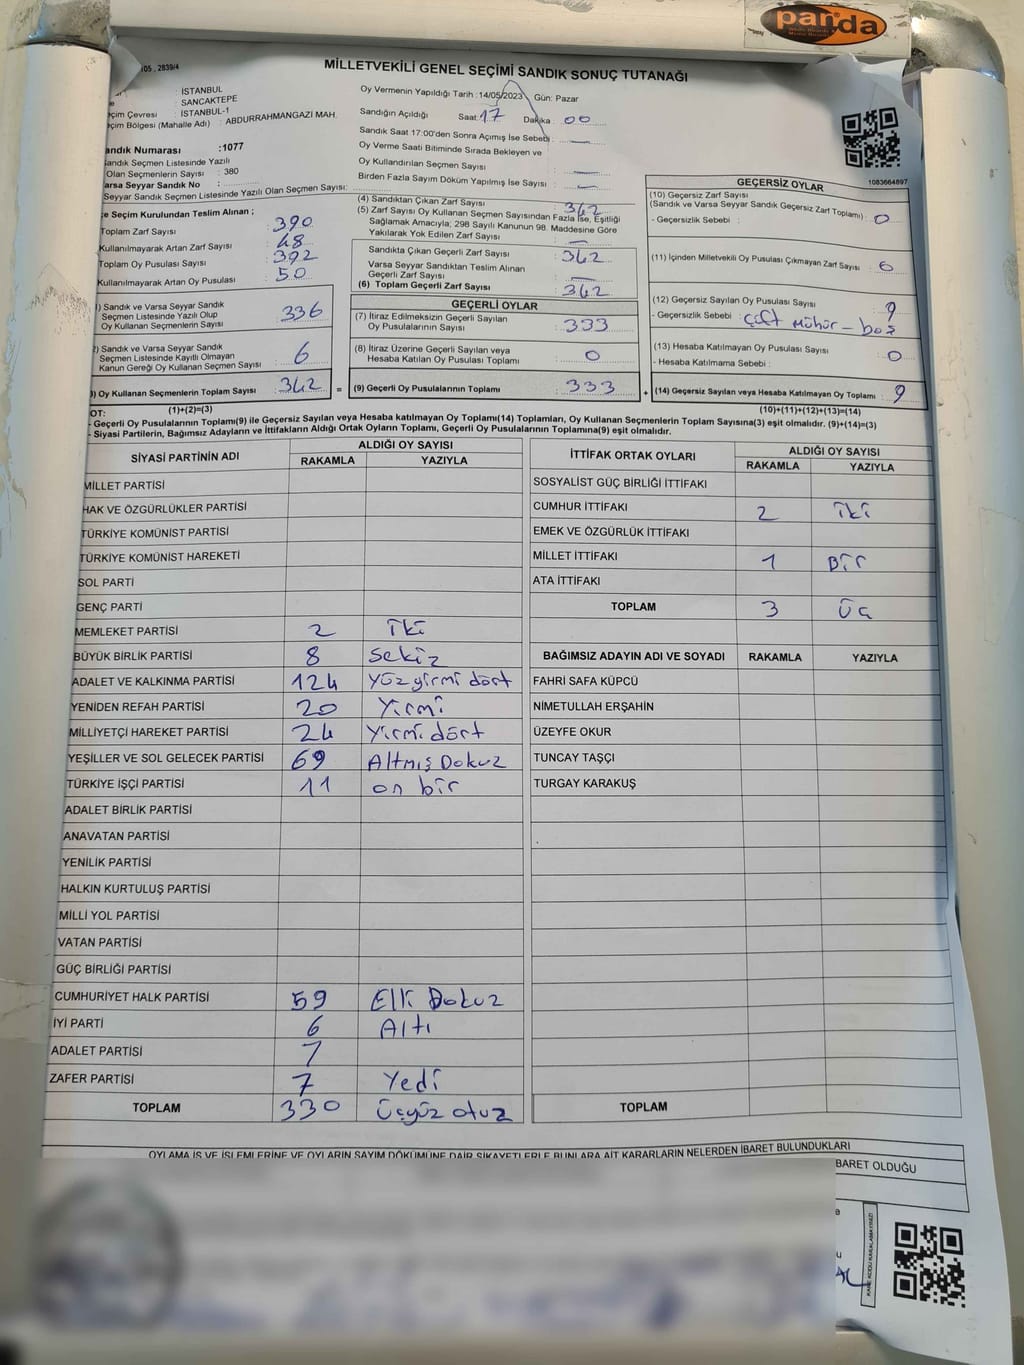 panda
105 , 2839/4
MİLLETVEKİLİ GENEL SEÇİMİ SANDIK SONUÇ TUTANAĞI
: İSTANBUL
: SANCAKTEPE
çim Çevresi : İSTANBUL-1
çim Bölgesi (Mahalle Adı) : ABDURRAHMANGAZİ MAH.
andık Numarası :1077
andık Seçmen Listesinde Yazılı
Olan Seçmenlerin Sayısı : 380
arsa Seyyar Sandık No :
Seyyar Sandık Seçmen Listesinde Yazılı Olan Seçmen Sayısı:
Oy Vermenin Yapıldığı Tarih :14/05/2023 Gün: Pazar
Sandığın Açıldığı Saat: 17 Dakika : 00
Sandık Saat 17:00'den Sonra Açımış İse Sebebi : —
Oy Verme Saati Bitiminde Sırada Bekleyen ve
Oy Kullandırılan Seçmen Sayısı : —
Birden Fazla Sayım Döküm Yapılmış İse Sayısı : —
1083664897
e Seçim Kurulundan Teslim Alınan ;
Toplam Zarf Sayısı : 390
Kullanılmayarak Artan Zarf Sayısı : 48
Toplam Oy Pusulası Sayısı : 392
Kullanılmayarak Artan Oy Pusulası : 50
) Sandık ve Varsa Seyyar Sandık
Seçmen Listesinde Yazılı Olup
Oy Kullanan Seçmenlerin Sayısı : 336
) Sandık ve Varsa Seyyar Sandık
Seçmen Listesinde Kayıtlı Olmayan
Kanun Gereği Oy Kullanan Seçmen Sayısı : 6
) Oy Kullanan Seçmenlerin Toplam Sayısı : 342
(1)+(2)=(3)
(4) Sandıktan Çıkan Zarf Sayısı : 342
(5) Zarf Sayısı Oy Kullanan Seçmen Sayısından Fazla İse, Eşitliği
Sağlamak Amacıyla; 298 Sayılı Kanunun 98. Maddesine Göre
Yakılarak Yok Edilen Zarf Sayısı : —
Sandıkta Çıkan Geçerli Zarf Sayısı : 342
Varsa Seyyar Sandıktan Teslim Alınan
Geçerli Zarf Sayısı : —
(6) Toplam Geçerli Zarf Sayısı : 342
GEÇERLİ OYLAR
(7) İtiraz Edilmeksizin Geçerli Sayılan
Oy Pusulalarının Sayısı : 333
(8) İtiraz Üzerine Geçerli Sayılan veya
Hesaba Katılan Oy Pusulası Toplamı : 0
= (9) Geçerli Oy Pusulalarının Toplamı : 333
GEÇERSİZ OYLAR
(10) Geçersiz Zarf Sayısı
(Sandık ve Varsa Seyyar Sandık Geçersiz Zarf Toplamı) : 0
- Geçersizlik Sebebi :
(11) İçinden Milletvekili Oy Pusulası Çıkmayan Zarf Sayısı :
(12) Geçersiz Sayılan Oy Pusulası Sayısı : 9
- Geçersizlik Sebebi : çift mühür – boş
(13) Hesaba Katılmayan Oy Pusulası Sayısı : 0
- Hesaba Katılmama Sebebi :
+ (14) Geçersiz Sayılan veya Hesaba Katılmayan Oy Toplamı : 9
(10)+(11)+(12)+(13)=(14)
OT:
- Geçerli Oy Pusulalarının Toplamı(9) ile Geçersiz Sayılan veya Hesaba katılmayan Oy Toplamı(14) Toplamları, Oy Kullanan Seçmenlerin Toplam Sayısına(3) eşit olmalıdır. (9)+(14)=(3)
- Siyasi Partilerin, Bağımsız Adayların ve İttifakların Aldığı Ortak Oyların Toplamı, Geçerli Oy Pusulalarının Toplamına(9) eşit olmalıdır.
SİYASİ PARTİNİN ADI ALDIĞI OY SAYISI
RAKAMLA YAZIYLA
MİLLET PARTİSİ
HAK VE ÖZGÜRLÜKLER PARTİSİ
TÜRKİYE KOMÜNİST PARTİSİ
TÜRKİYE KOMÜNİST HAREKETİ
SOL PARTİ
GENÇ PARTİ
MEMLEKET PARTİSİ 2 iki
BÜYÜK BİRLİK PARTİSİ 8 sekiz
ADALET VE KALKINMA PARTİSİ 124 yüzyirmi dört
YENİDEN REFAH PARTİSİ 20 Yirmi
MİLLİYETÇİ HAREKET PARTİSİ 24 Yirmi dört
YEŞİLLER VE SOL GELECEK PARTİSİ 69 Altmış Dokuz
TÜRKİYE İŞÇİ PARTİSİ 11 on bir
ADALET BİRLİK PARTİSİ
ANAVATAN PARTİSİ
YENİLİK PARTİSİ
HALKIN KURTULUŞ PARTİSİ
MİLLİ YOL PARTİSİ
VATAN PARTİSİ
GÜÇ BİRLİĞİ PARTİSİ
CUMHURİYET HALK PARTİSİ 59 Elli Dokuz
İYİ PARTİ 6 Altı
ADALET PARTİSİ
ZAFER PARTİSİ 7 Yedi
TOPLAM 330 Üçyüz otuz
İTTİFAK ORTAK OYLARI ALDIĞI OY SAYISI
RAKAMLA YAZIYLA
SOSYALİST GÜÇ BİRLİĞİ İTTİFAKI
CUMHUR İTTİFAKI 2 iki
EMEK VE ÖZGÜRLÜK İTTİFAKI
MİLLET İTTİFAKI 1 Bir
ATA İTTİFAKI
TOPLAM 3 Üç
BAĞIMSIZ ADAYIN ADI VE SOYADI RAKAMLA YAZIYLA
FAHRİ SAFA KÜPCÜ
NİMETULLAH ERŞAHİN
ÜZEYFE OKUR
TUNCAY TAŞÇI
TURGAY KARAKUŞ
TOPLAM
OYLAMA İŞ VE İŞLEMLERİNE VE OYLARIN SAYIM DÖKÜMÜNE DAİR ŞİKAYETLERLE BUNLARA AİT KARARLARIN NELERDEN İBARET BULUNDUKLARI
BARET OLDUĞU